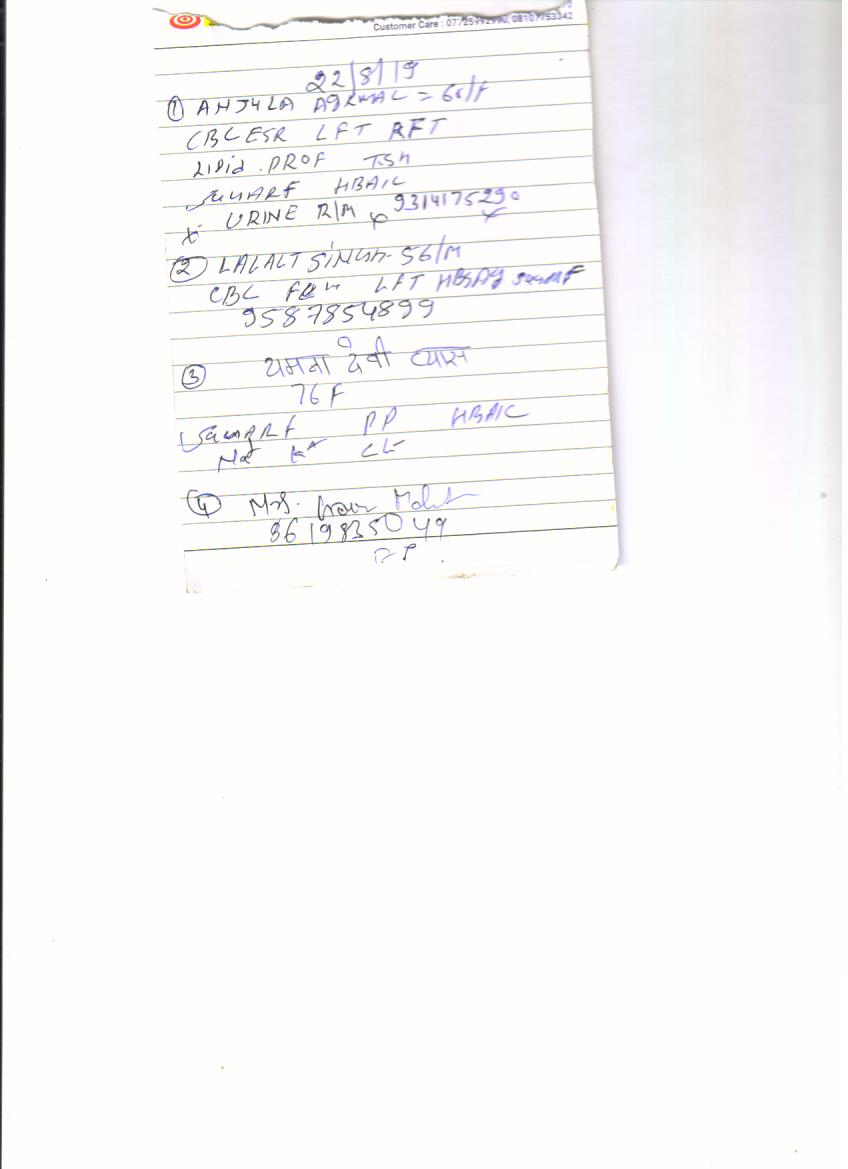 Customer Care : 07725992990, 08107753342
22/8/19
① ANJULA AGRWAL = 60/F
CBC ESR LFT RFT
Lipid . PROF TSH
SUGARF HBAIC
URINE R/M 9314175290
② LALALT SINGH - 56/M
CBC LFT HBSAg SugarF
9587854899
③ यमना देवी व्यास
76 F
SugarF PP HBAIC
Na+ K+ CL-
④ Mrs.
8619835049